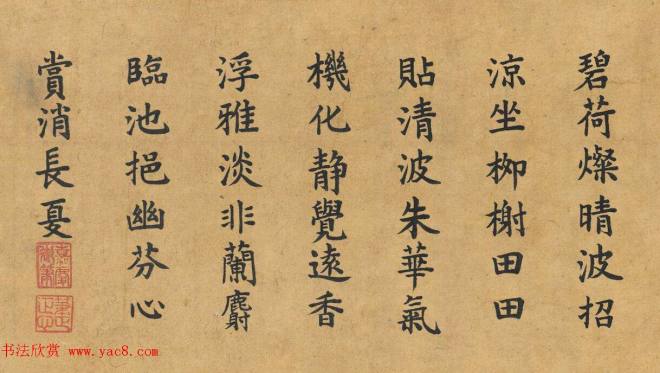 碧荷燦晴波招
涼坐柳榭田田
貼清波朱華氣
機化静覺遠香
浮雅淡非蘭麝
臨池挹幽芬心
賞消長夏
书法欣赏 www.yac8.com